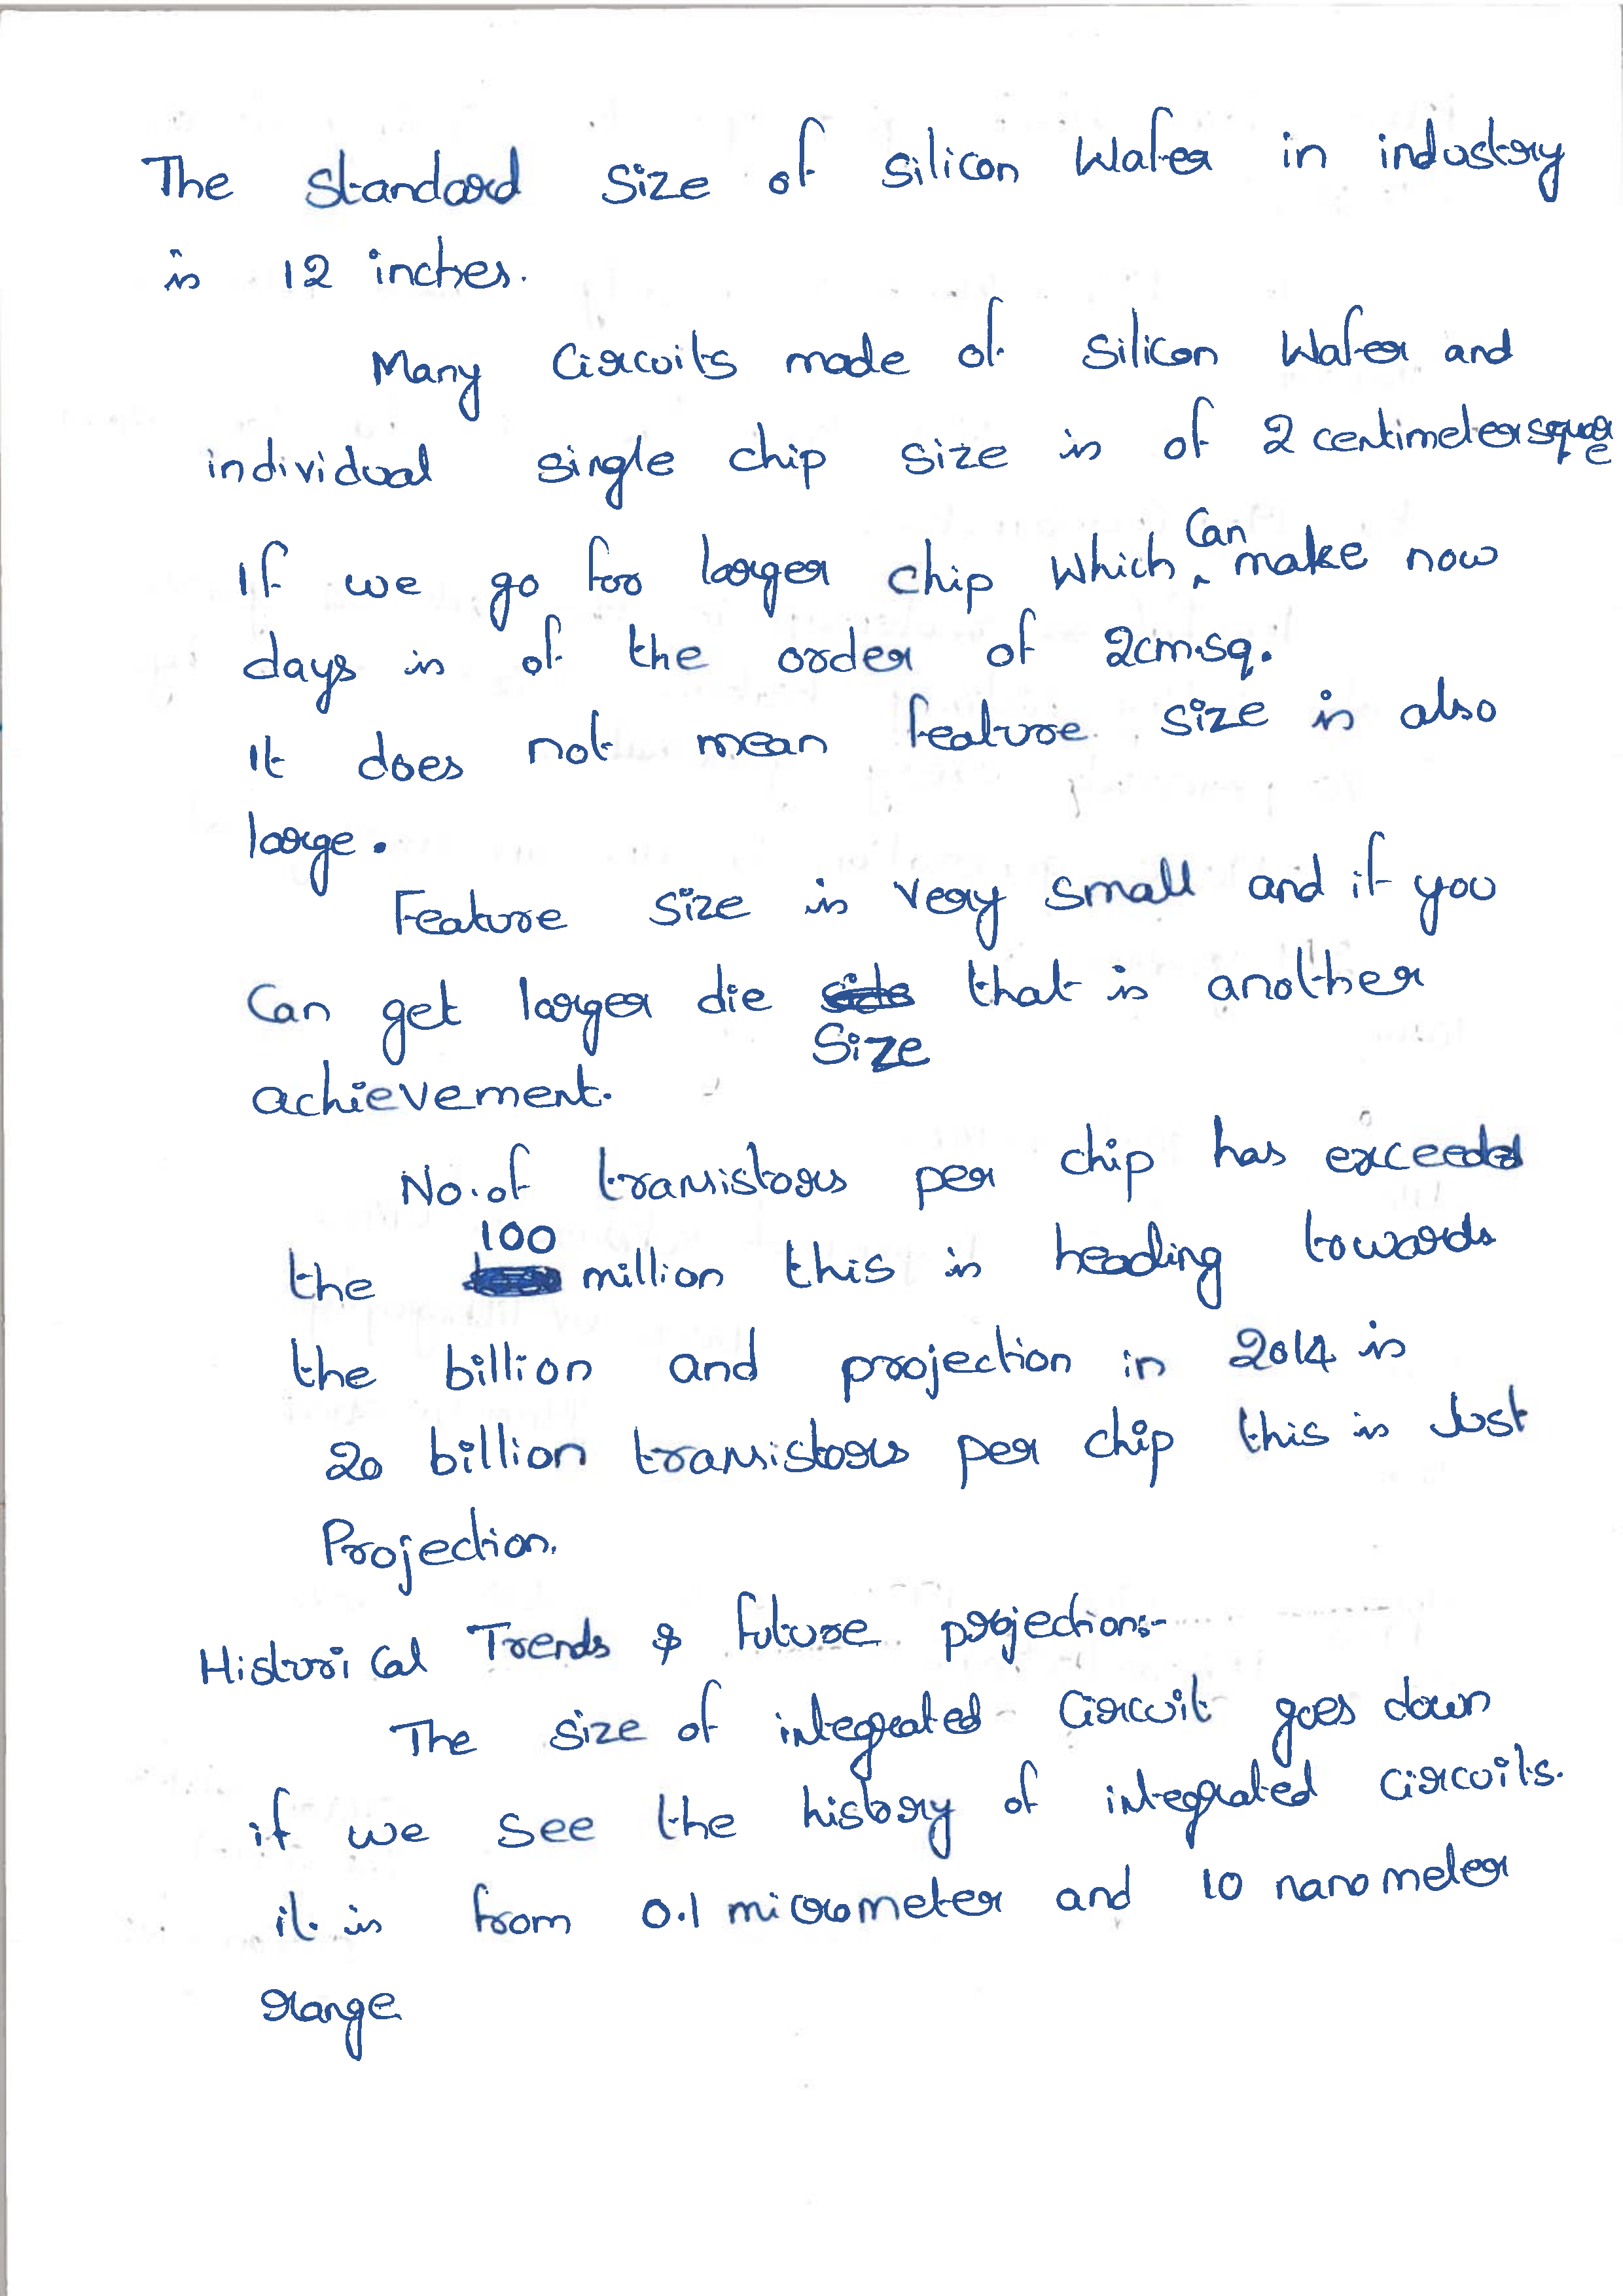 The standard size of silicon Wafer in industry
is 12 inches.
Many Circuits made of silicon Wafer and
individual single chip size is of 2 centimeter square
If we go for larger chip which can make now
days is of the order of 2cm.sq.
It does not mean feature size is also
large.
Feature size is very small and if you
Can get larger die size that is another
achievement.
No.of transistors per chip has exceeded
the 100 million this is heading towards
the billion and projection in 2014 is
20 billion transistors per chip this is Just
Projection.
Historical Trends & future projection:-
The size of integrated Circuit goes down
if we see the history of integrated circuits.
it is from 0.1 micrometer and 10 nanometer
range